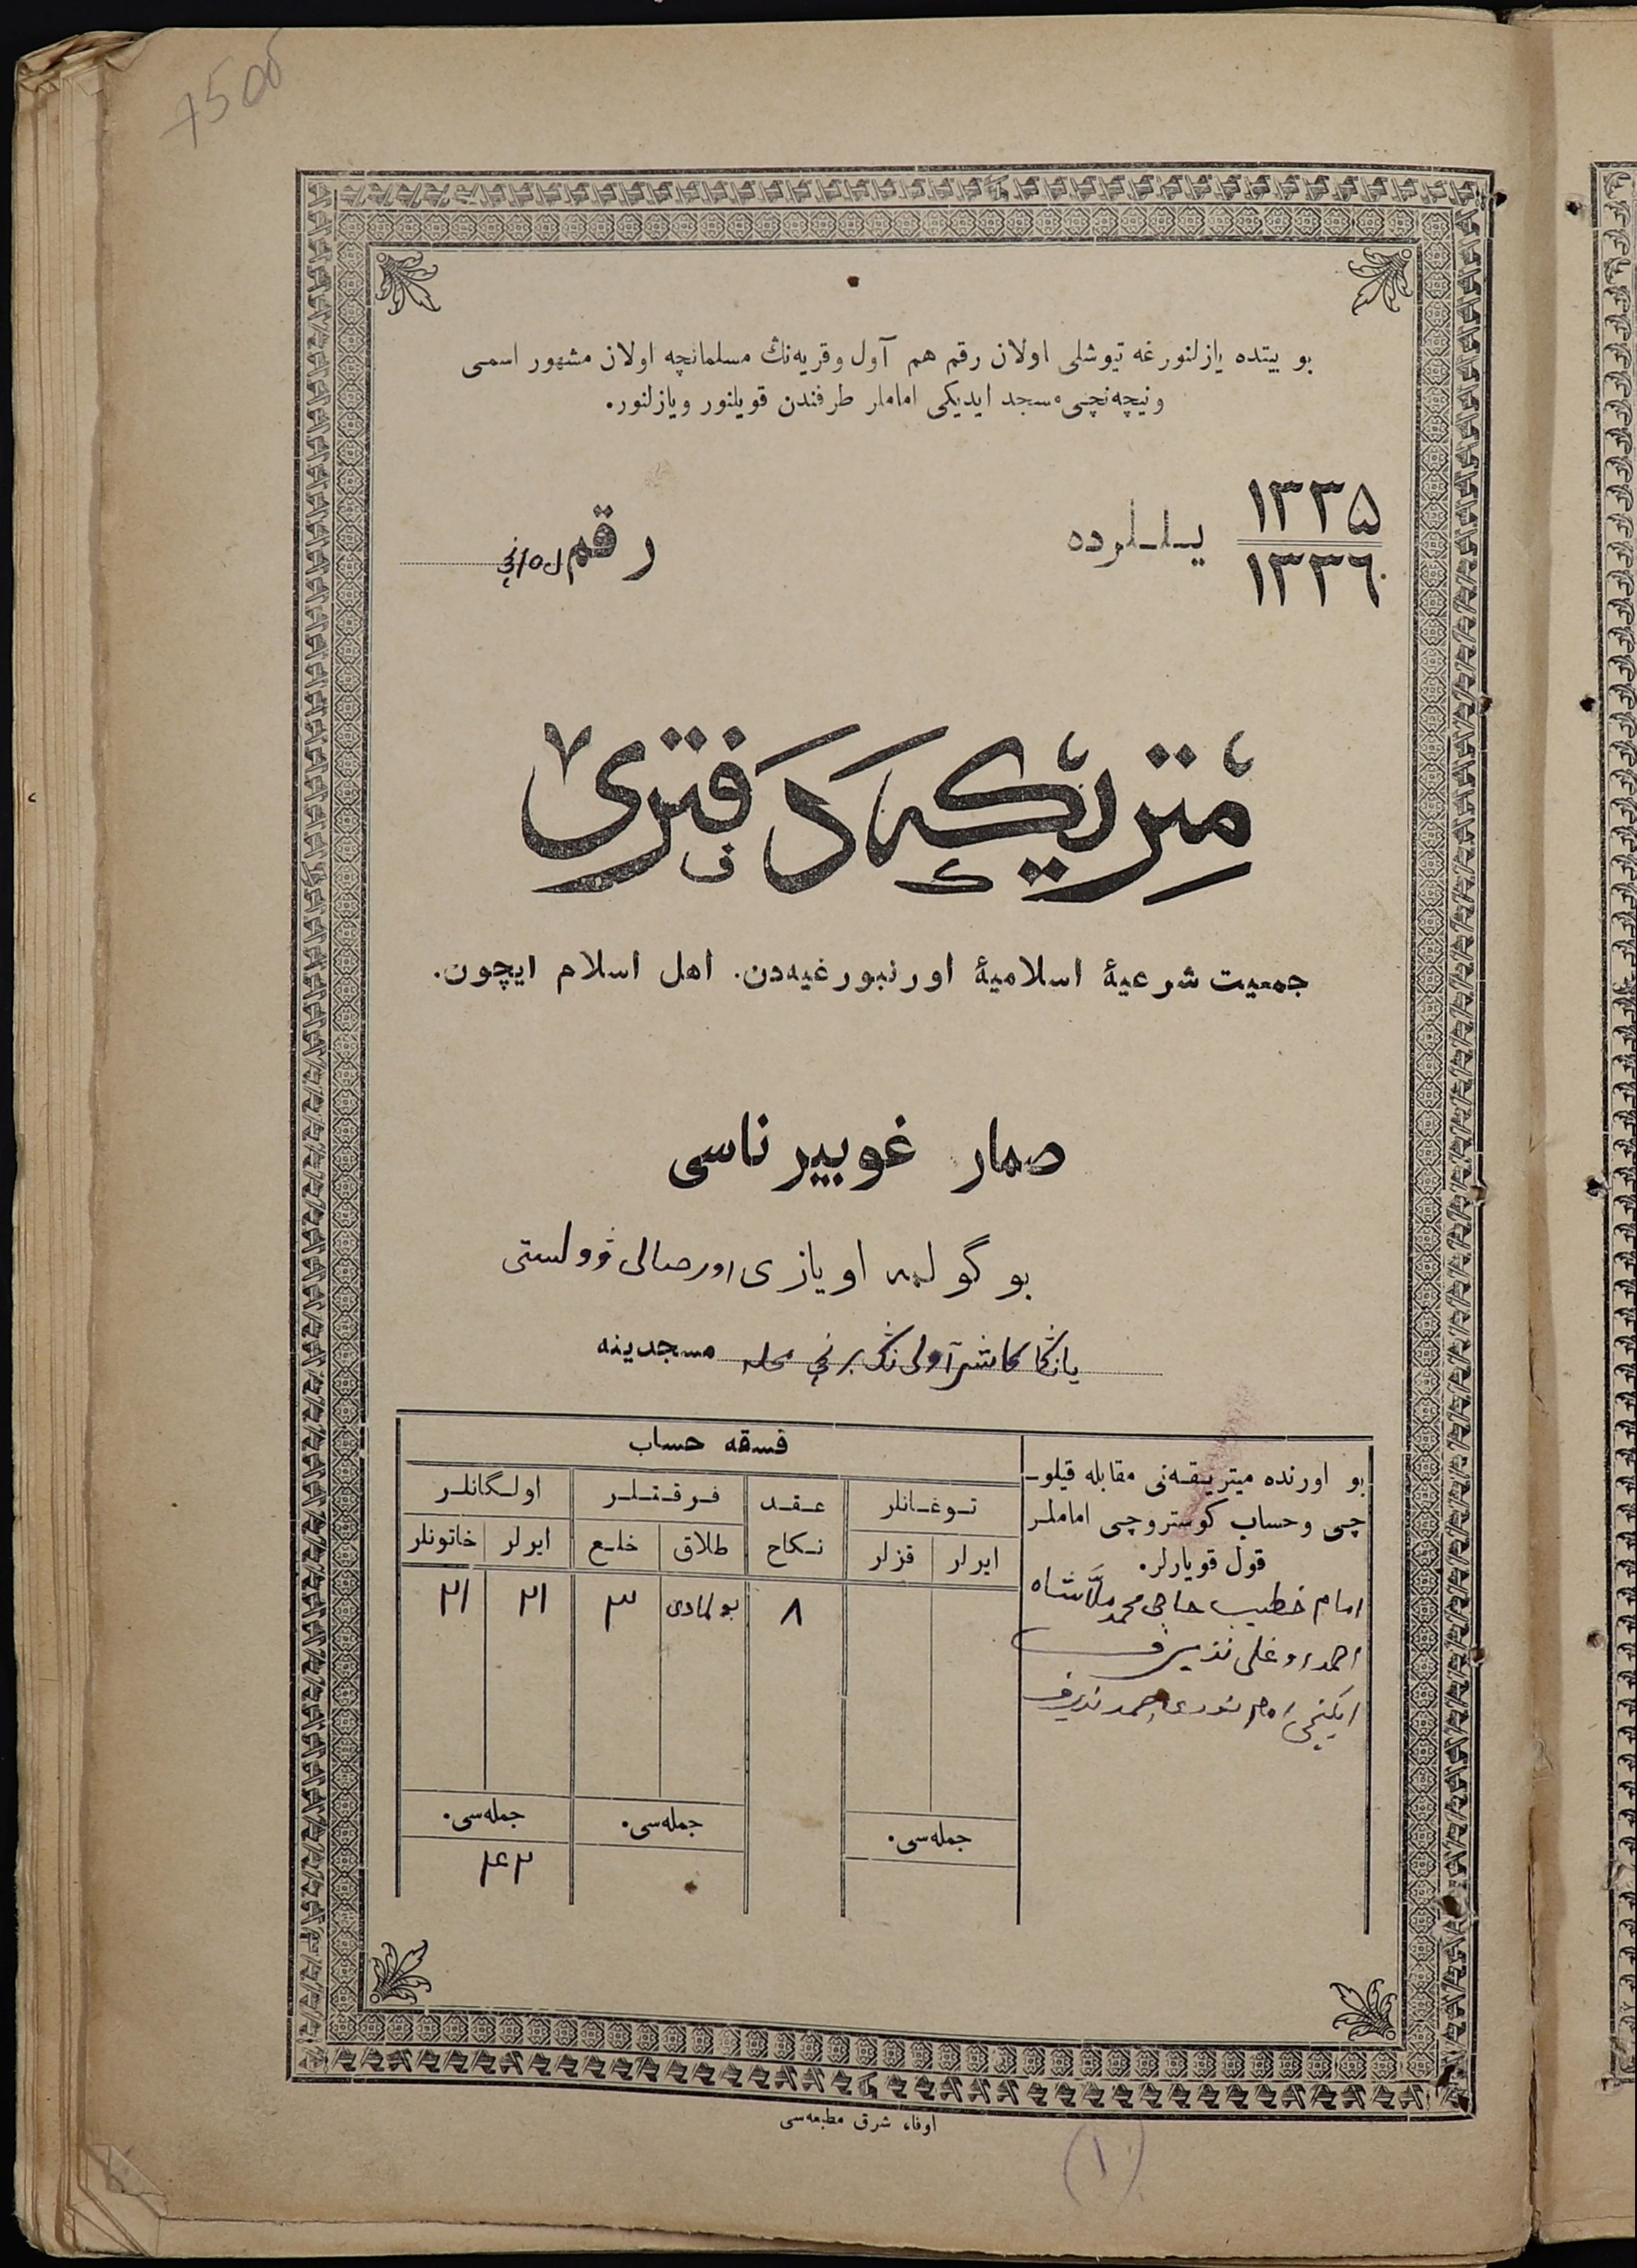 7500
بو بیتده یازلنورغه تیوشلی اولان رقم هم آول وقریه‌نڭ مسلمانچه اولان مشهور اسمی
ونیچه‌نچی مسجد ایدیکی اماملر طرفندن قویلنور ویازلنور.
۱۳۳۵
۱۳۳٦
یـلـلرده
رقم
مِتریکه دَفتری
جمعیت شرعیهٔ اسلامیهٔ اورنبورغیه‌دن. اهل اسلام ایچون.
صمار غوبیرناسی
بوگولمه اویازی اورصالی ۋولستی
یاڭا کاشر آولی‌نڭ برنچی محله مسجدینه
بو اورنده میتریقه‌نی مقابله قیلو-
چی وحساب کوستروچی اماملر
قول قویارلر.
امام خطیب حاجی محمد ملاشاه
احمد اوغلی نذیرف
ایکنچی امام نوری احمد نذیرف
قسقه حساب
توغانلر
عقد
نکاح
فرقتلر
اولگانلر
ایرلر
قزلر
طلاق
خلع
ایرلر
خاتونلر
۸
بولمادی
۳
۲۱
۲۱
جمله‌سی.
جمله‌سی.
جمله‌سی.
۴۲
اوفا، شرق مطبعه‌سی
۱